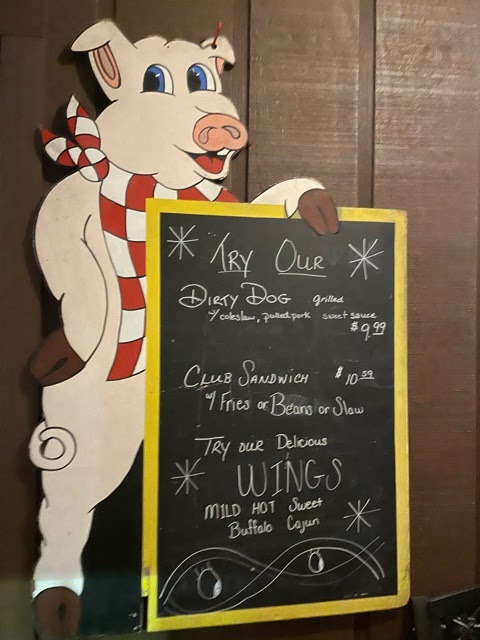 Try Our
Dirty Dog grilled
w/ coleslaw, pulled pork sweet sauce
$9.99
Club Sandwich $10.59
w/ Fries or Beans or Slaw
Try our Delicious
WINGS
MILD HOT Sweet
Buffalo Cajun